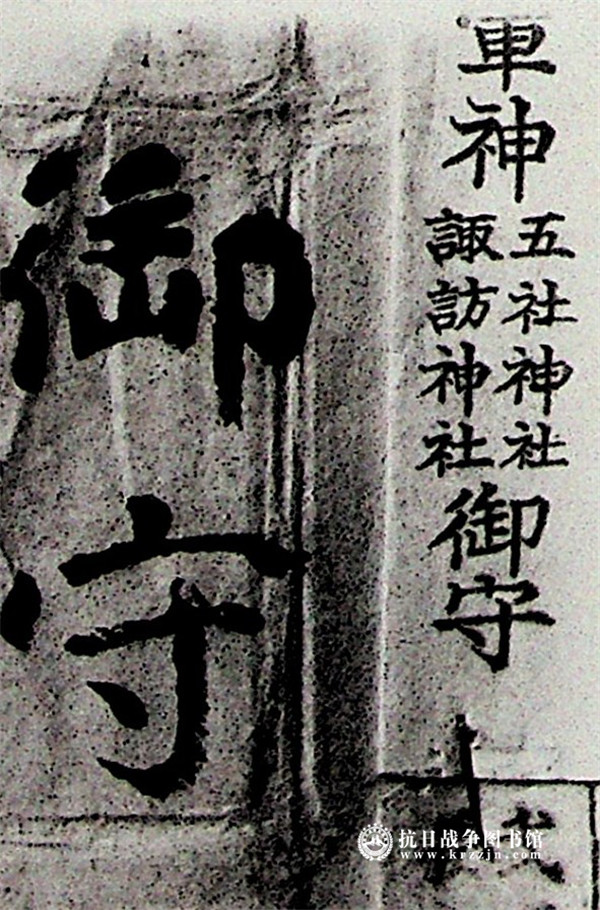 軍神
五社神社
諏訪神社
御守
御守
抗日战争图书馆
www.krzzjn.com